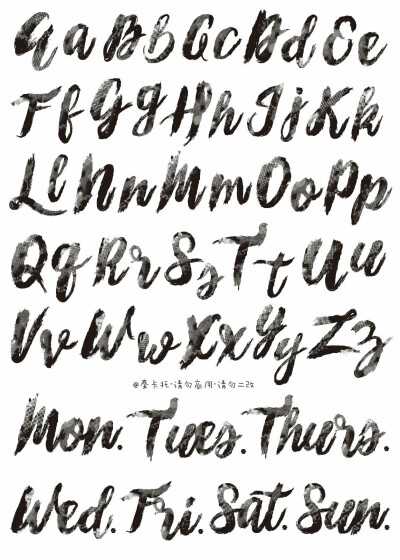 Aa Bb Cc Dd Ee
Ff Gg Hh Ij Kk
Ll Nn Mm Oo Pp
Qq Rr Ss Tt Uu
Vv Ww Xx Yy Zz
@秦卡托·请勿商用·请勿二改
Mon. Tues. Thurs.
Wed. Fri. Sat. Sun.